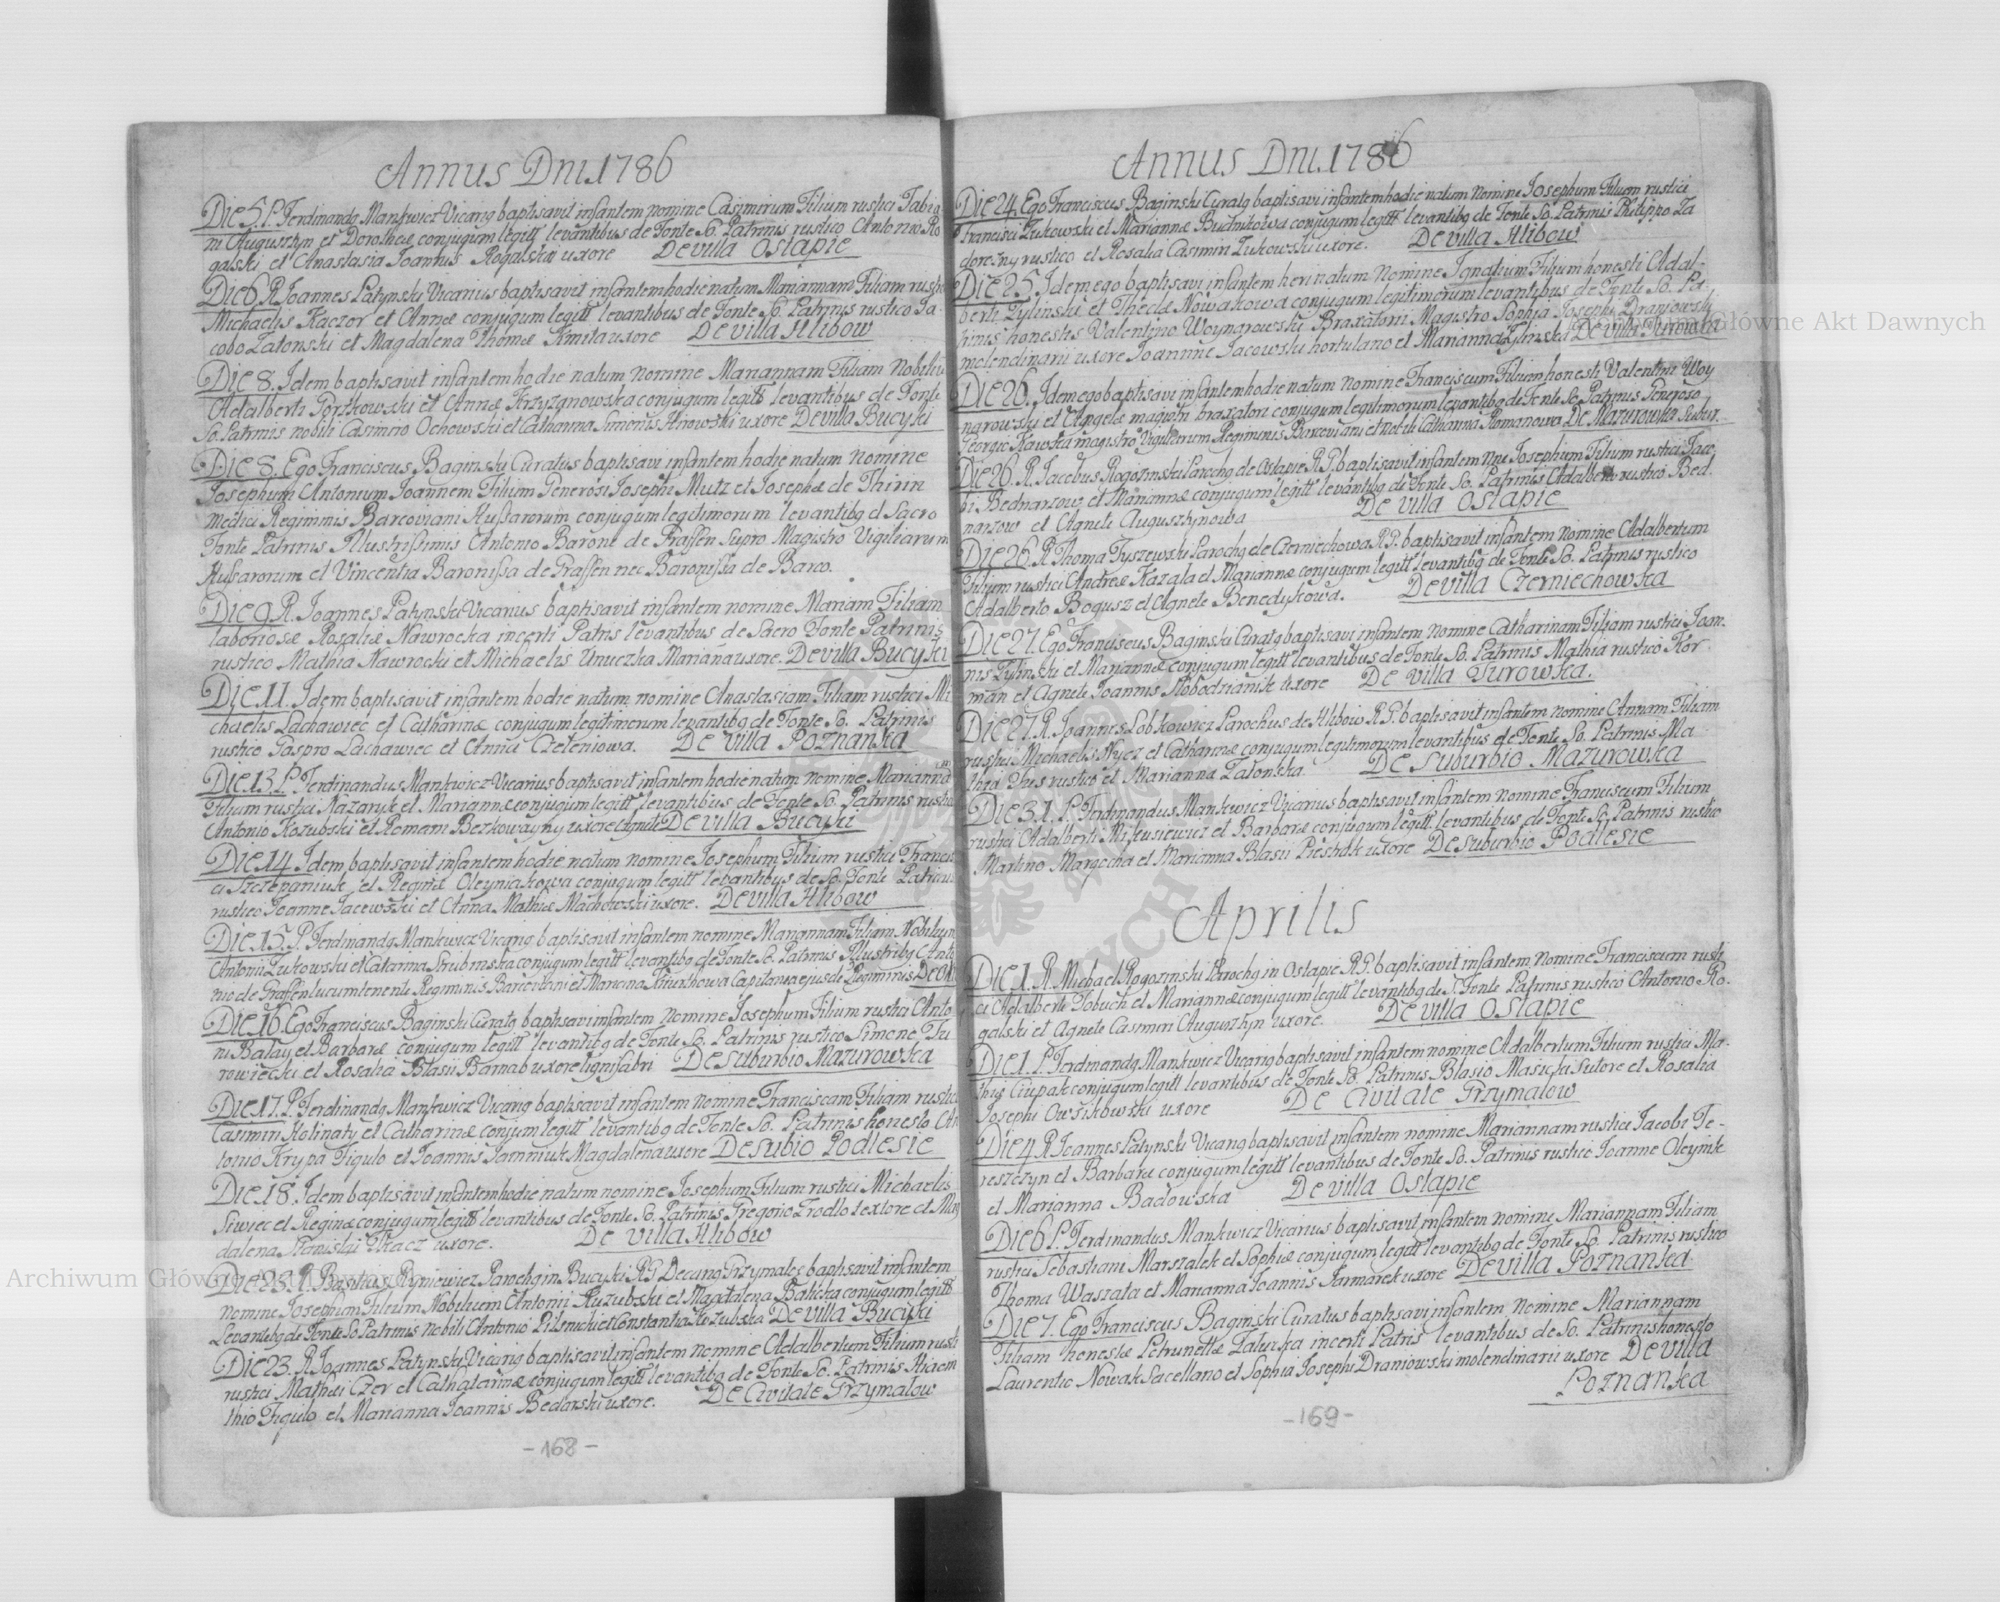 Annus Dni. 1786
Die 5. P. Ferdinandq Mankwicz Vicariq baptisavit infantem nomine Casimirum Filium rustici Fabia
ni Augusztyn et Dorotheæ conjugum legitt levantibus de Fonte So. Patrinis rustico Antonio Ro
galski et Anastasia Joannis Rogalskia uxore De villa Ostapie
Die 6. R. Joannes Patynski Vicarius baptisavit infantem hodie natum Mariannam Filiam rustici
Michaelis Kaczor et Annæ conjugum legitt levantibus de Fonte So. Patrinis rustico Ja-
cobo Zatonski et Magdalena Thomæ Kmita uxore De villa Hlibow
Die 8. Idem baptisavit infantem hodie natum nomine Mariannam Filiam Nobiliu
Adalberti Porzkowski et Annæ Krzyzanowska conjugum legitt levantibus de Fonte
So. Patrinis nobili Casimiro Ochowski et Catharina Simonis Hirowski uxore De villa Bucyki
Die 8. Ego Franciscus Baginski Curatus baptisavi infantem hodie natum nomine
Josephum Antonium Joannem Filium Generosi Josephi Mutz et Josephæ de Thirin
Medici Regiminis Barcoviani Hussarorum conjugum legitimorum levantibq d Sacro
Fonte Patrinis Illustrissimis Antonio Barone de Grassen Supro Magistro Vigiliarum
Hussarorum et Vincentia Baronissa de Grassen nec Baronissa de Barco.
Die 9 R. Joannes Patynski Vicarius baptisavit infantem nomine Mariam Filiam
laboriosæ Rosaliæ Nawrocka incerti Patris levantibus de Sacro Fonte Patrinis
rustico Mathia Nawrocki et Michaelis Unuczka Marianna uxore. De villa Bucyki
Die 11. Idem baptisavit infantem hodie natum nomine Anastasiam Filiam rustici Mi
chaelis Lachawiec et Catharinæ conjugum legitimorum levantibq de Fonte So. Patrinis
rustico Gaspro Lachawiec et Anna Czeleniowa. De Villa Poznanka
Die 13. P. Ferdinandus Mankwicz Vicarius baptisavit infantem hodie natum nomine Marianna
Filium rustici Nazaryk et Mariannæ conjugum legitt levantibus de Fonte So. Patrinis rustico
Antonio Kozubski et Romani Bezkowayny uxore Agnite De villa Bucyki
Die 14. Idem baptisavit infantem hodie natum nomine Josephum Filium rustici Francis
ci Szczepaniuk et Reginæ Oleyniakowa conjugum legitt levantibus de So. Fonte Patrinis
rustico Joanne Jacewski et Anna Mathiæ Machowski uxore. De villa Hlibow
Die 15. P. Ferdinandq Mankwicz Vicariq baptisavit infantem nomine Mariannam Filiam Nobilium
Antonii Zukowski et Catarina Skubinska conjugum legitt levantibq de Fonte So. Patrinis Illustribq Anto
nio de Grassen Lucumtenente Regiminis Barcoviani et Marcina Kniurthowa Capitanea ejusde Regiminis
Die 16. Ego Franciscus Baginski Curatq baptisavi infantem nomine Josephum Filium rustici Anto
ni Balay et Barbaræ conjugum legitt levantibq de Fonte So. Patrinis rustico Simone Tu
rowiecki et Rosalia Blasii Barnab uxore lignifabri De Suburbio Mazurowka
Die 17. P. Ferdinandq Mankwicz Vicariq baptisavit infantem nomine Franciscam Filiam rustici
Casimiri Holinaty et Catharinæ conjum legitt levantibq de Fonte So. Patrinis honesto An
tonio Krypa Figulo et Joannis Jarmniuk Magdalena uxore De Subio Podlesie
Die 18. Idem baptisavit infantem hodie natum nomine Josephum Filium rustici Michaelis
Siwiec et Reginæ conjugum legitt levantibus de Fonte So. Patrinis Gregorio Zrodlo textore et Mag
dalena Stanislai Tkacz uxore. De Villa Hlibow
Die 23. R. Basilius Ryniewicz Parochq in Bucyki R.G. Decanq Grzymales baptisavit infantem
nomine Josephum Filium Nobilium Antonii Kuzubski et Magdalena Balicka conjugum legitt
Levantibq de Fonte So. Patrinis nobili Antonio Pilsnicki et Constantia Kuzubska De Villa Bucyki
Die 23. R. Joannes Patynski Vicariq baptisavit infantem nomine Adalbertum Filium rusti
rustici Mathei Czer et Catharinæ conjugum legitt levantibq de Fonte So. Patrinis
thio Figulo et Marianna Joannis Bedarski uxore. De Civitate Grzymalow
-168-
Annus Dni. 1786
Die 24. Ego Franciscus Baginski Curatq baptisavi infantem hodie natum nomine Josephum Filium rustici
Francisci Zukowski et Mariannæ Budnikowa conjugum legitt levantibq de Fonte So. Patrinis Philippo Za
dorozny rustico et Rosalia Casimiri Zukowski uxore. De villa Hlibow
Die 25. Idem ego baptisavi infantem heri natum nomine Ignatium Filium honesti Adal-
berti Zylinski et Theclæ Nowakowa conjugum legitimorum levantibus de Fonte So. Pa-
trinis honestis Valentino Woynarowski Braxatorii Magistro Sophia Josephi Draniowski
molendinarii uxore Joannine Jacowski hortulano et Marianna Zylinska De villa Turowka
Die 26. Idem ego baptisavi infantem hodie natum nomine Franciscum Filium honesti Valentini Woy
narowski et Angelæ magistri braxatori conjugum legitimorum levantibq de Fonte So. Patrinis Generoso
Georgio Kawska magistro Vigiliarum Regiminis Barcoviani et nobili Catharina Romanowa De Mazurowka Subur.
Die 26. R. Jacobus Rogozinski Parochq de Ostapie R.G. baptisavit infantem Nne Josephum Filium rustici Jaco
bi Bednarzow et Mariannæ conjugum legitt levantibq de Fonte So. Patrinis Adalberto rustico Bed.
narzow et Agnete Augusztynowa De Villa Ostapie
Die 26. R. Thoma Tyszewski Parochq de Czerniechowa R.G. baptisavit infantem nomine Adalbertum
Filium rustici Andreæ Kazala et Mariannæ conjugum legitt levantibq de Fonte So. Patrinis rustico
Adalberto Bogusz et Agnete Benedykowa. De villa Czerniechowka
Die 27. Ego Franciscus Baginski Curatq baptisavi infantem nomine Catharinam Filiam rustici Joan.
nis Zylinski et Mariannæ conjugum legitt levantibus de Fonte So. Patrinis Mathia rustico Kor
man et Agnete Joannis Slobodzianik uxore De villa Turowka.
Die 27. R. Joannes Lobkowicz Parochus de Hlibow R.G. baptisavit infantem nomine Annam Filiam
rustici Michaelis Nycz et Catharinæ conjugum legitimorum levantibus de Fonte So. Patrinis Ma
thia Gus rustico et Marianna Zatonska De Suburbio Mazurowka
Die 31. P. Ferdinandus Mankwicz Vicarius baptisavit infantem nomine Franciscum Filium
rustici Adalberti Mikusiewicz et Barbaræ conjugum legitt. levantibus de Fonte So. Patrinis rustico
Martino Margocha et Marianna Blasii Pieshak uxore De Suburbio Podlesie
Aprilis
Die 1. R. Michael Rogozinski Parochq in Ostapie R.G. baptisavit infantem nomine Franciscum rusti
ci Adalberti Gobuch et Mariannæ conjugum legitt levantibq de S. Fonte Patrinis rustico Antonio Ro.
galski et Agnete Casimiri Auguszhyn uxore. De villa Ostapie
Die 1. P. Ferdinandq Mankwicz Vicariq baptisavit infantem nomine Adalbertum Filium rustici Ma-
thiæ Ciupak conjugum legitt levantibus de Fonte So. Patrinis Blasio Masicki Sutore et Rosalia
Josephi Owsikowski uxore De Civitate Grzymalow
Die 4 R. Joannes Patynski Vicariq baptisavit infantem nomine Mariannam rustici Jacobi Te-
reszczyn et Barbaræ conjugum legitt levantibus de Fonte So. Patrinis rustico Joanne Oleynik
et Marianna Badowska De villa Ostapie
Die 6 P. Ferdinandus Mankwicz Vicarius baptisavit infantem nomine Mariannam Filiam
rustici Sebastiani Marszalek et Sophiæ conjugum legitt levantibq de Fonte So. Patrinis rustico
Thoma Waszata et Marianna Joannis Jarmarek uxore De villa Poznanka
Die 7. Ego Franciscus Baginski Curatus baptisavi infantem nomine Mariannam
Filiam honestæ Petrunellæ Zaluska incerti Patris levantibus de So. Patrinis honesto
Laurentio Nowak Sacellano et Sophia Josephi Draniowski molendinarii uxore De villa
Poznanka
-169-
Archiwum Główne Akt Dawnych